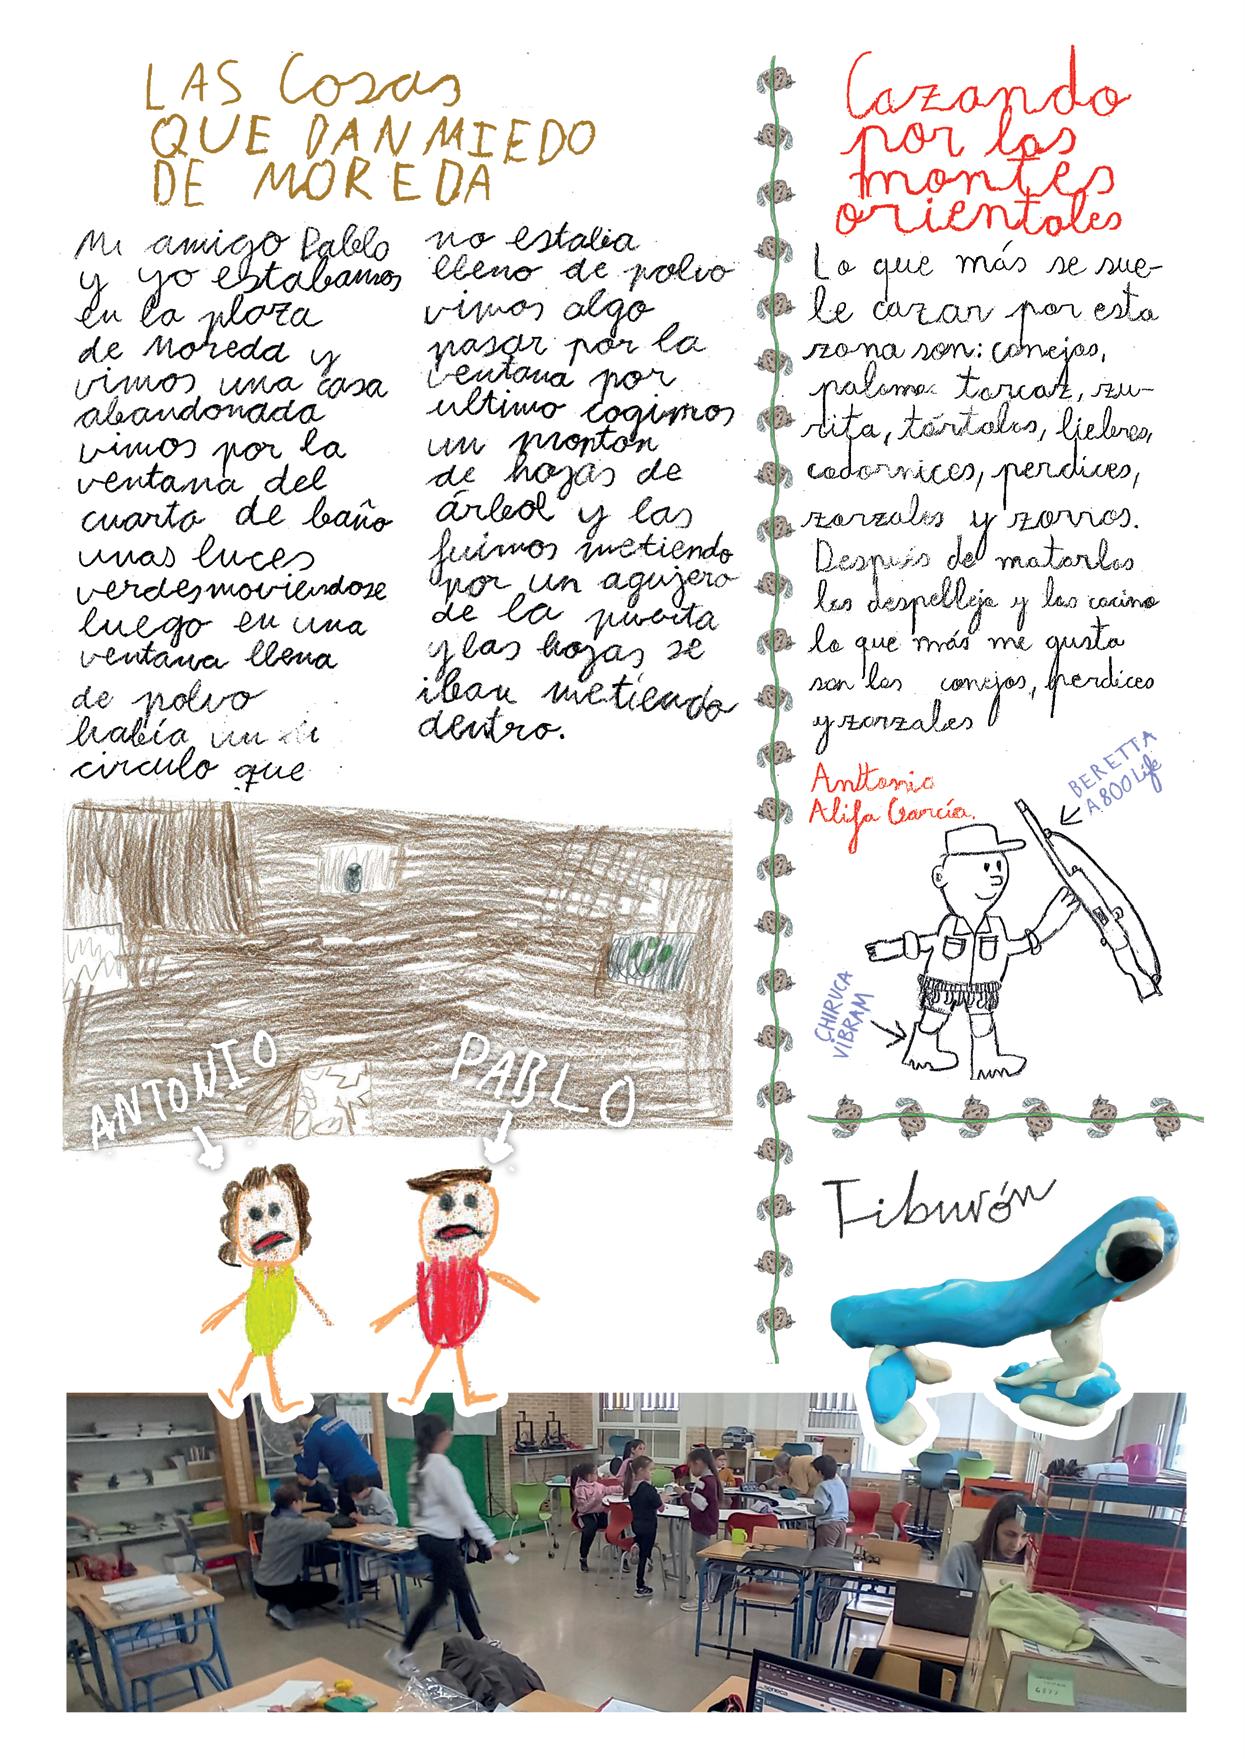 LAS Cosas
QUE DAN MIEDO
DE MOREDA
Mi amigo Pablo
y yo estabamos
en la plaza
de Moreda y
vimos una casa
abandonada
vimos por la
ventana del
cuarto de baño
unas luces
verdes moviendose
luego en una
ventana llena
de polvo
había un
circulo que
no estaba
lleno de polvo
vimos algo
pasar por la
ventana por
ultimo cogimos
un monton
de hojas de
árbol y las
fuimos metiendo
por un agujero
de la puerta
y las hojas se
iban metiendo
dentro.
ANTONIO
PABLO
Cazando
por los
montes
orientales
Lo que más se sue-
le cazar por esta
zona son: conejos,
paloma torcaz, zu-
rita, tórtolas, liebres,
codornices, perdices,
zorzales y zorros.
Después de matarlos
los despellejo y los cocino
lo que más me gusta
son los conejos, perdices
y zorzales
Anttonio
Alifa García.
BERETTA
A800 Life
CHIRUCA
VIBRAM
Tiburón